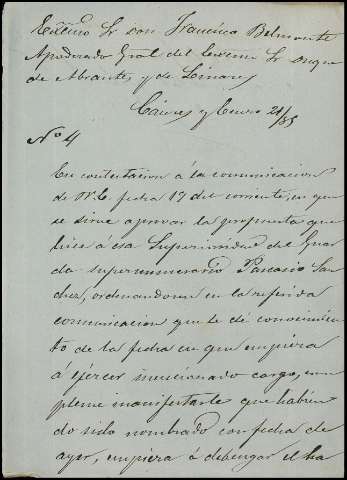 Excmo Sr don Francisco Belmonte
Apoderado Gral del Excmo Sr Duque
de Abrantes y de Linares
Cáceres y Enero 21/85
Nº 4
En contestacion á la comunicacion
de V.E. fecha 17 del corriente, en que
se sirve aprovar la propuesta que
hice a esa Superioridad del Guar
da supernumerario Pancasio San
chez, ordenandome en la referida
comunicacion que le dé conocimien
to de la fecha en que empiera
á ejercer mencionado cargo, cum
pleme manifestarle que habien
do sido nombrado con fecha de
ayer, empiera á debengar el ha